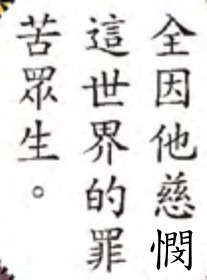 全因他慈憫
這世界的罪
苦眾生。